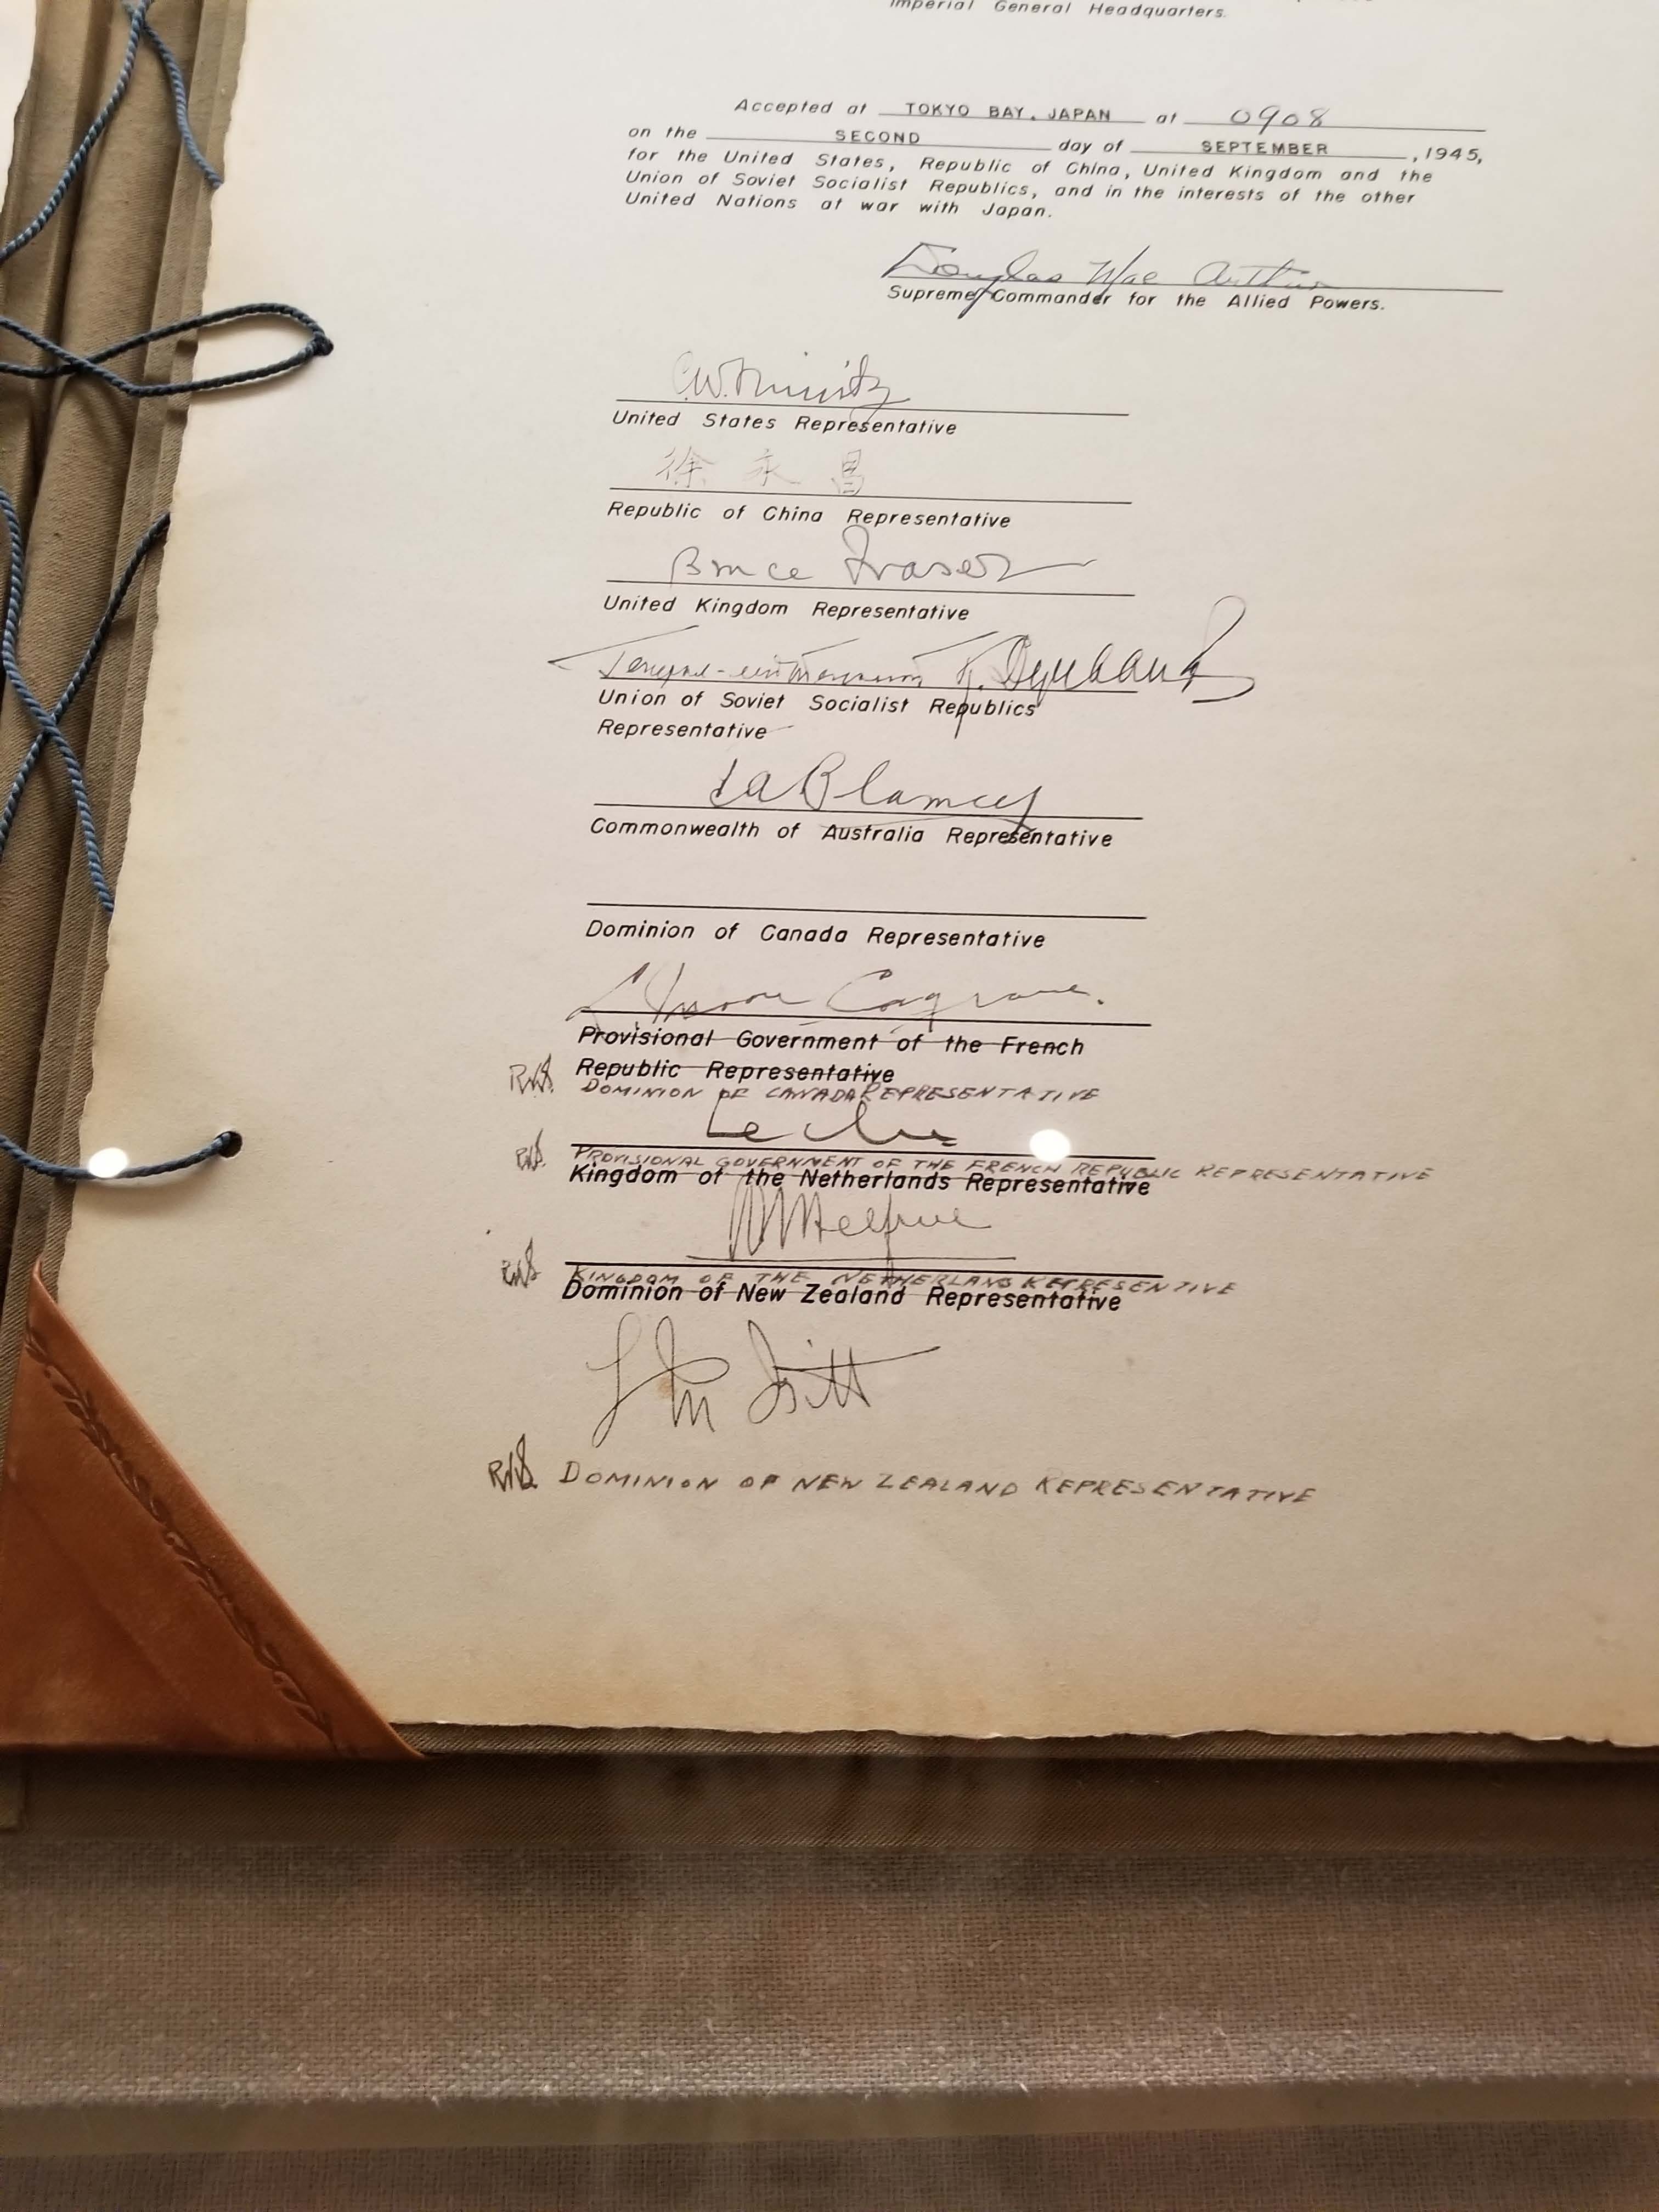 Imperial General Headquarters.
Accepted at TOKYO BAY, JAPAN at 0908
on the SECOND day of SEPTEMBER, 1945,
for the United States, Republic of China, United Kingdom and the
Union of Soviet Socialist Republics, and in the interests of the other
United Nations at war with Japan.
Douglas MacArthur
Supreme Commander for the Allied Powers.
C.W. Nimitz
United States Representative
徐永昌
Republic of China Representative
Bruce Fraser
United Kingdom Representative
Генерал-лейтенант К. Деревянко
Union of Soviet Socialist Republics
Representative
T A Blamey
Commonwealth of Australia Representative
Dominion of Canada Representative
L. Moore Cosgrave.
Provisional Government of the French
Republic Representative
DOMINION OF CANADA REPRESENTATIVE
Leclerc
PROVISIONAL GOVERNMENT OF THE FRENCH REPUBLIC REPRESENTATIVE
Kingdom of the Netherlands Representative
Helfrich
KINGDOM OF THE NETHERLANS REPRESENTIVE
Dominion of New Zealand Representative
L M Isitt
DOMINION OF NEW ZEALAND REPRESENTATIVE